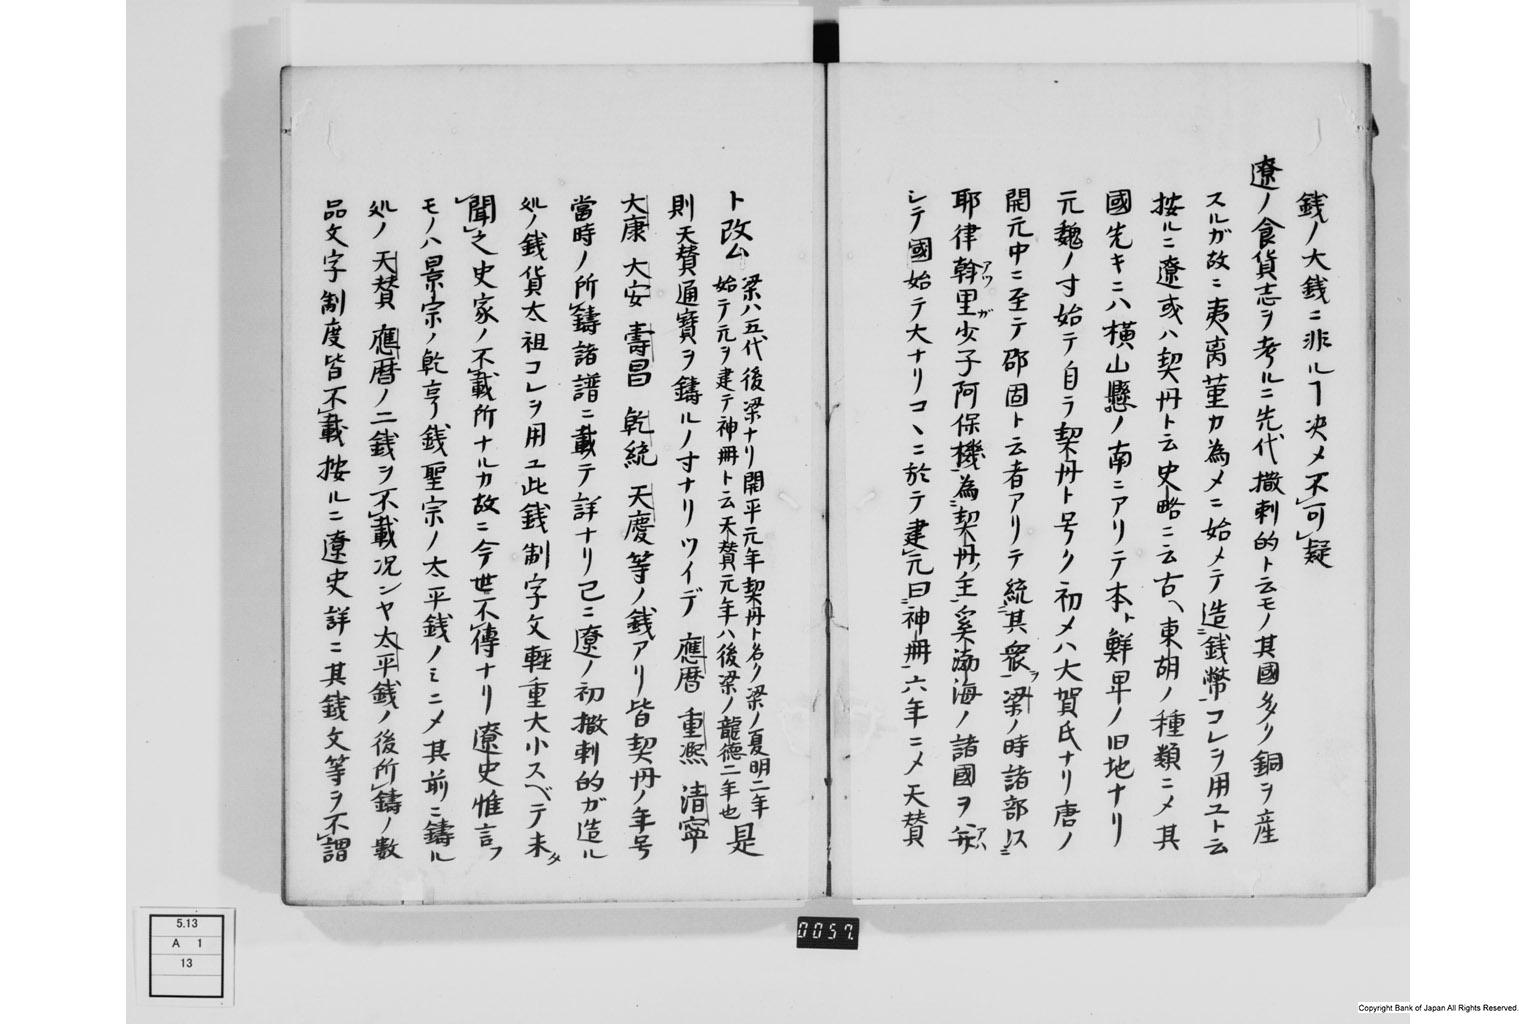 銭ノ大銭ニ非ルヿ决メ不可疑
遼ノ食貨志ヲ考ルニ先代撒剌的ト云モノ其國多ク銅ヲ産
スルガ故ニ夷离菫カ為メニ始メテ造銭幣コレヲ用ユト云
按ルニ遼或ハ契丹ト云史略ニ云古ヘ東胡ノ種類ニメ其
國先キニハ横山縣ノ南ニアリテ本ト鮮卑ノ旧地ナリ
元魏ノ寸始テ自ラ契丹ト号ク初メハ大賀氏ナリ唐ノ
開元中ニ至テ邵固ト云者アリテ統其衆ヲ梁ノ時諸部以
耶律斡里アツガ少子阿保機為契丹主奚渤海ノ諸國ヲ并アハ
シテ國始テ大ナリコヽニ於テ建元曰神冊六年ニメ天賛
ト改ム
梁ハ五代後梁ナリ開平元年契丹ト名ク梁ノ夏明二年
始テ元ヲ建テ神冊ト云天賛元年ハ後梁ノ龍徳二年也
是
則天賛通寳ヲ鑄ルノ寸ナリツイデ應曆重凞清寧
大康大安壽昌乾統天慶等ノ銭アリ皆契丹ノ年号
當時ノ所鑄諸譜ニ載テ詳ナリ已ニ遼ノ初撒剌的ガ造ル
処ノ銭貨太祖コレヲ用ユ此銭制字文輕重大小スベテ未タ
聞之史家ノ不載所ナルカ故ニ今世不傳ナリ遼史惟言フ
モノハ景宗ノ乾亨銭聖宗ノ太平銭ノミニメ其前ニ鑄ル
処ノ天賛應曆ノ二銭ヲ不載况ンヤ太平銭ノ後所鑄ノ數
品文字制度皆不載按ルニ遼史詳ニ其銭文等ヲ不謂
0057.
5.13
A 1
13
Copyright Bank of Japan All Rights Reserved.